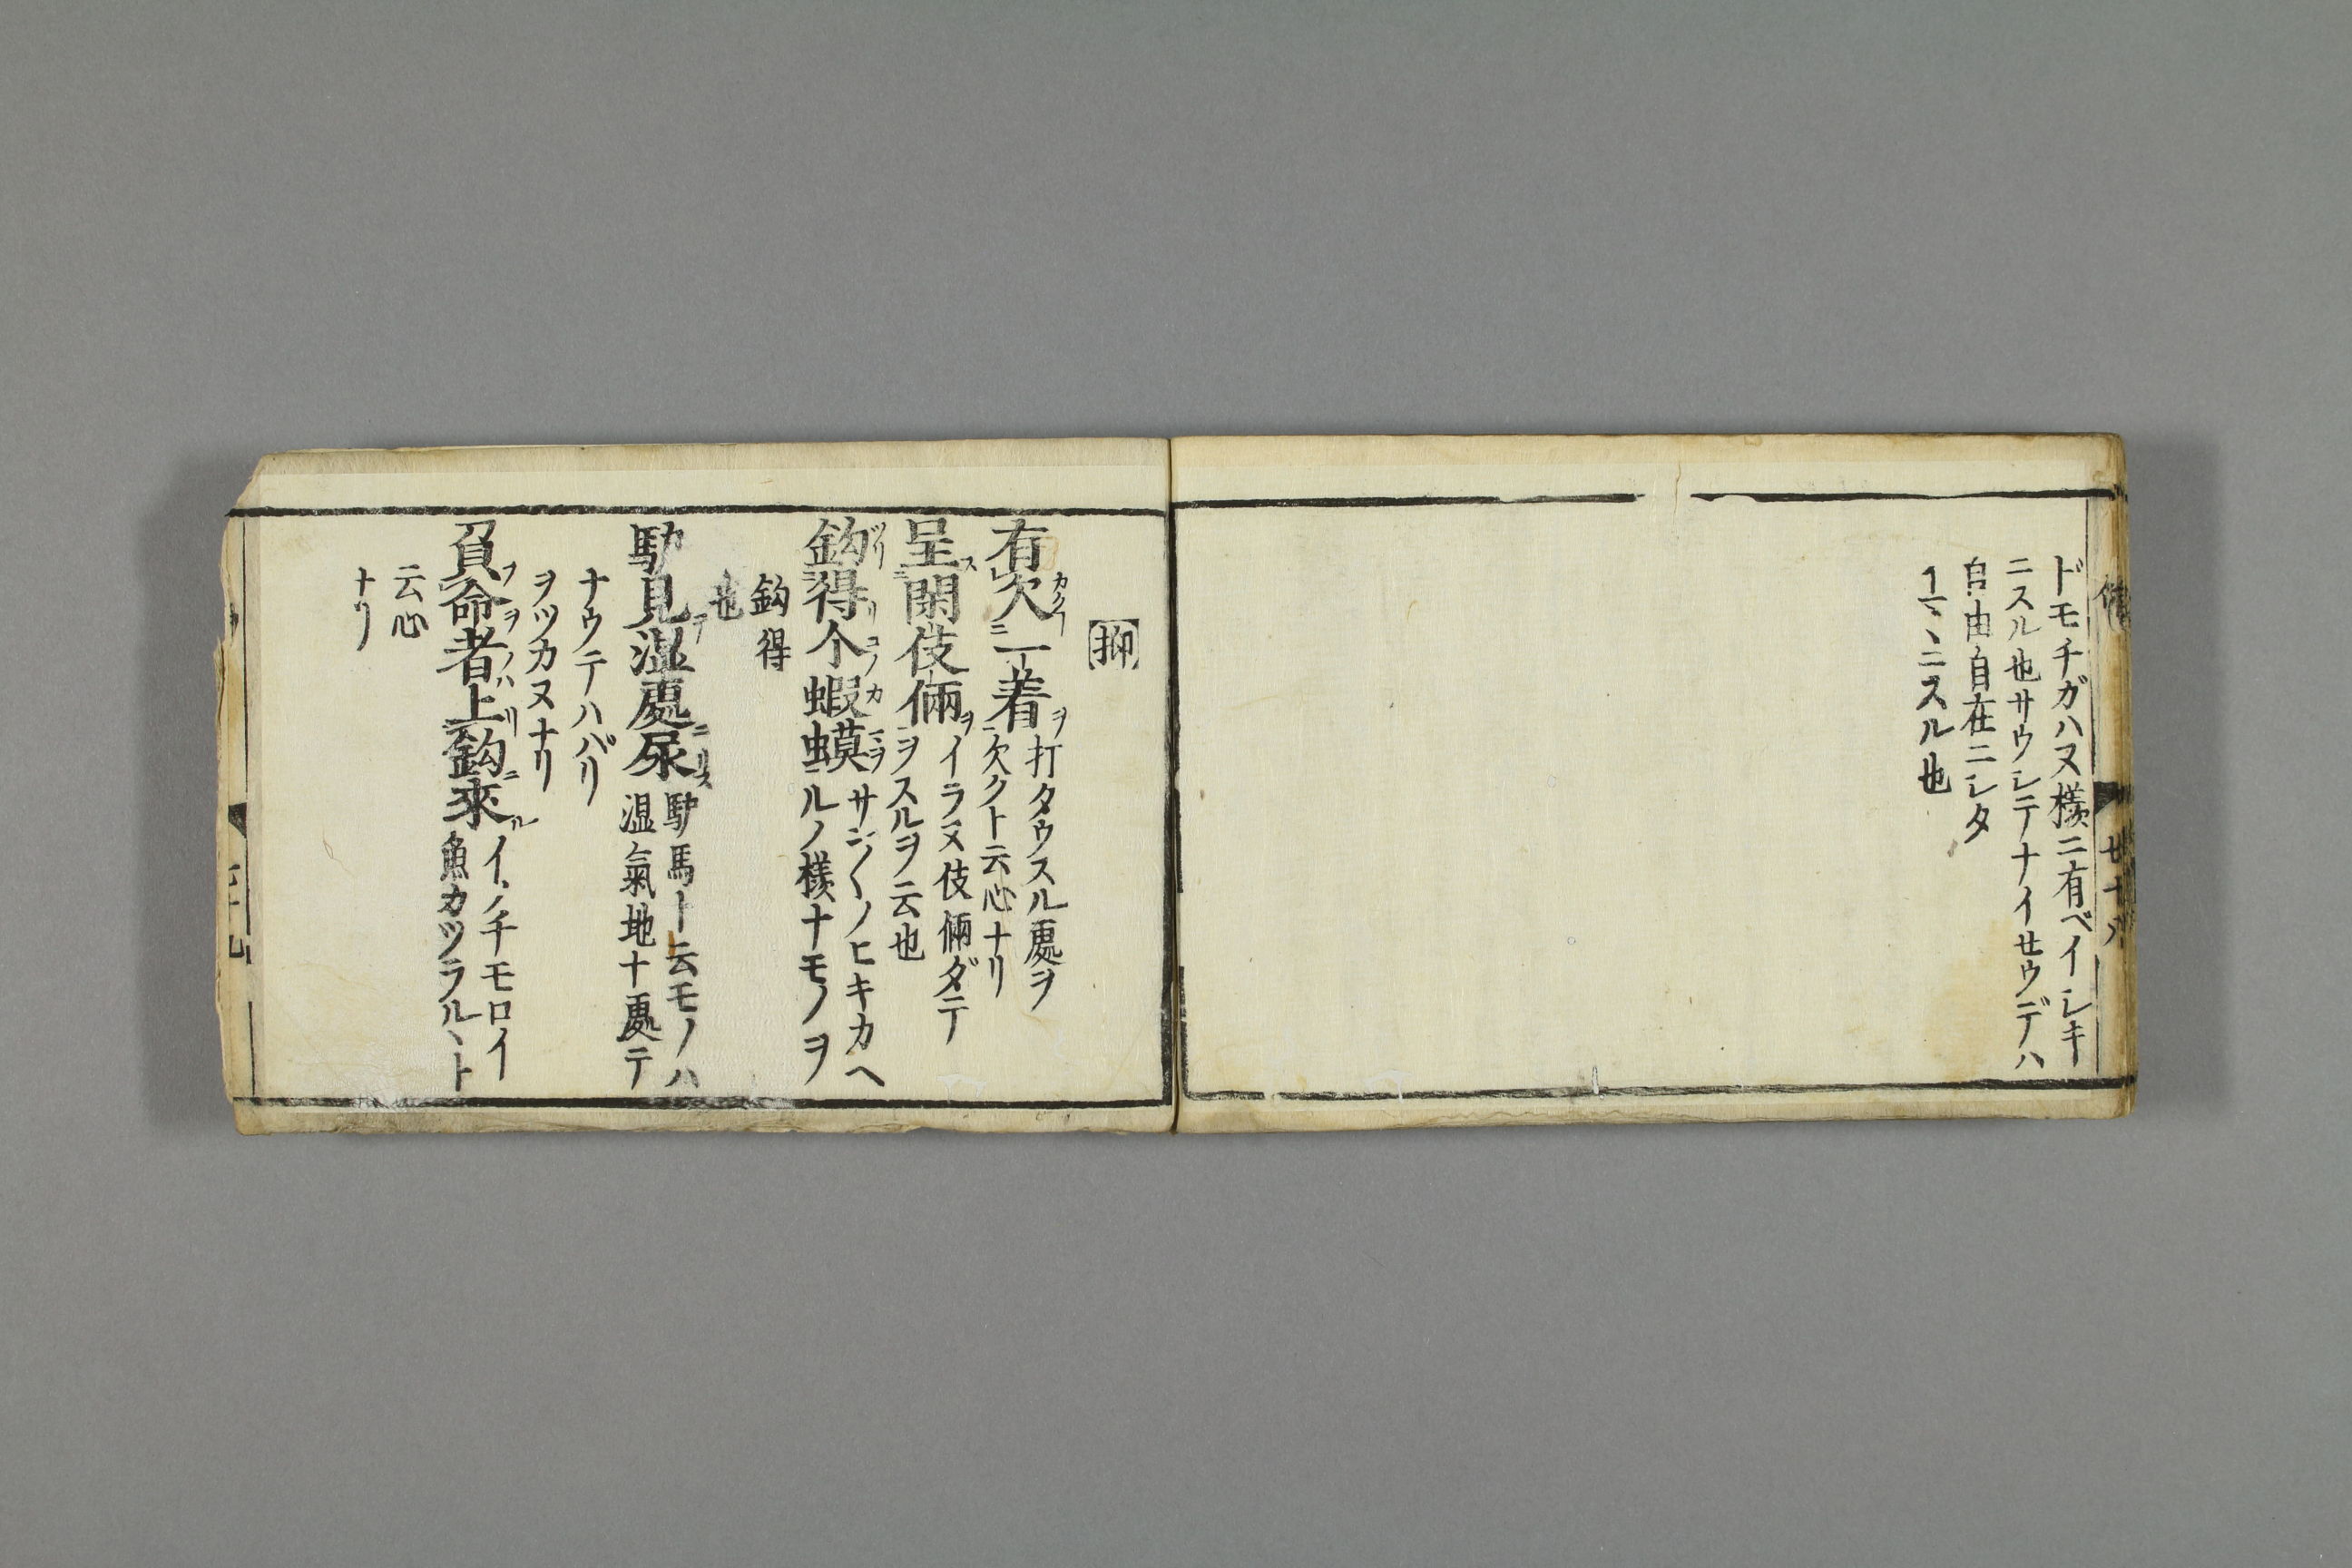 ドモチガハヌ様ニ有ベイレキ
ニスル也サウレテナイセウデハ
自由自在ニレタ
ニスル也
廿十八
抑
有欠一着ヲ打タウスル處ヲ
欠クト云心ナリ
呈閑伎倆ヲイラヌ伎倆ダテ
ヲスルヲ云也
鈎得个蝦蟆サジ〱ノヒキカヘ
ルノ様ナモノヲ
鈎得
也
馿見湿處尿馿馬ト云モノハ
湿氣地ナ處テ
ナウテハバリ
ヲツカヌナリ
負命者上鈎來イノチモロイ
魚カツラルヽト
云心
ナリ